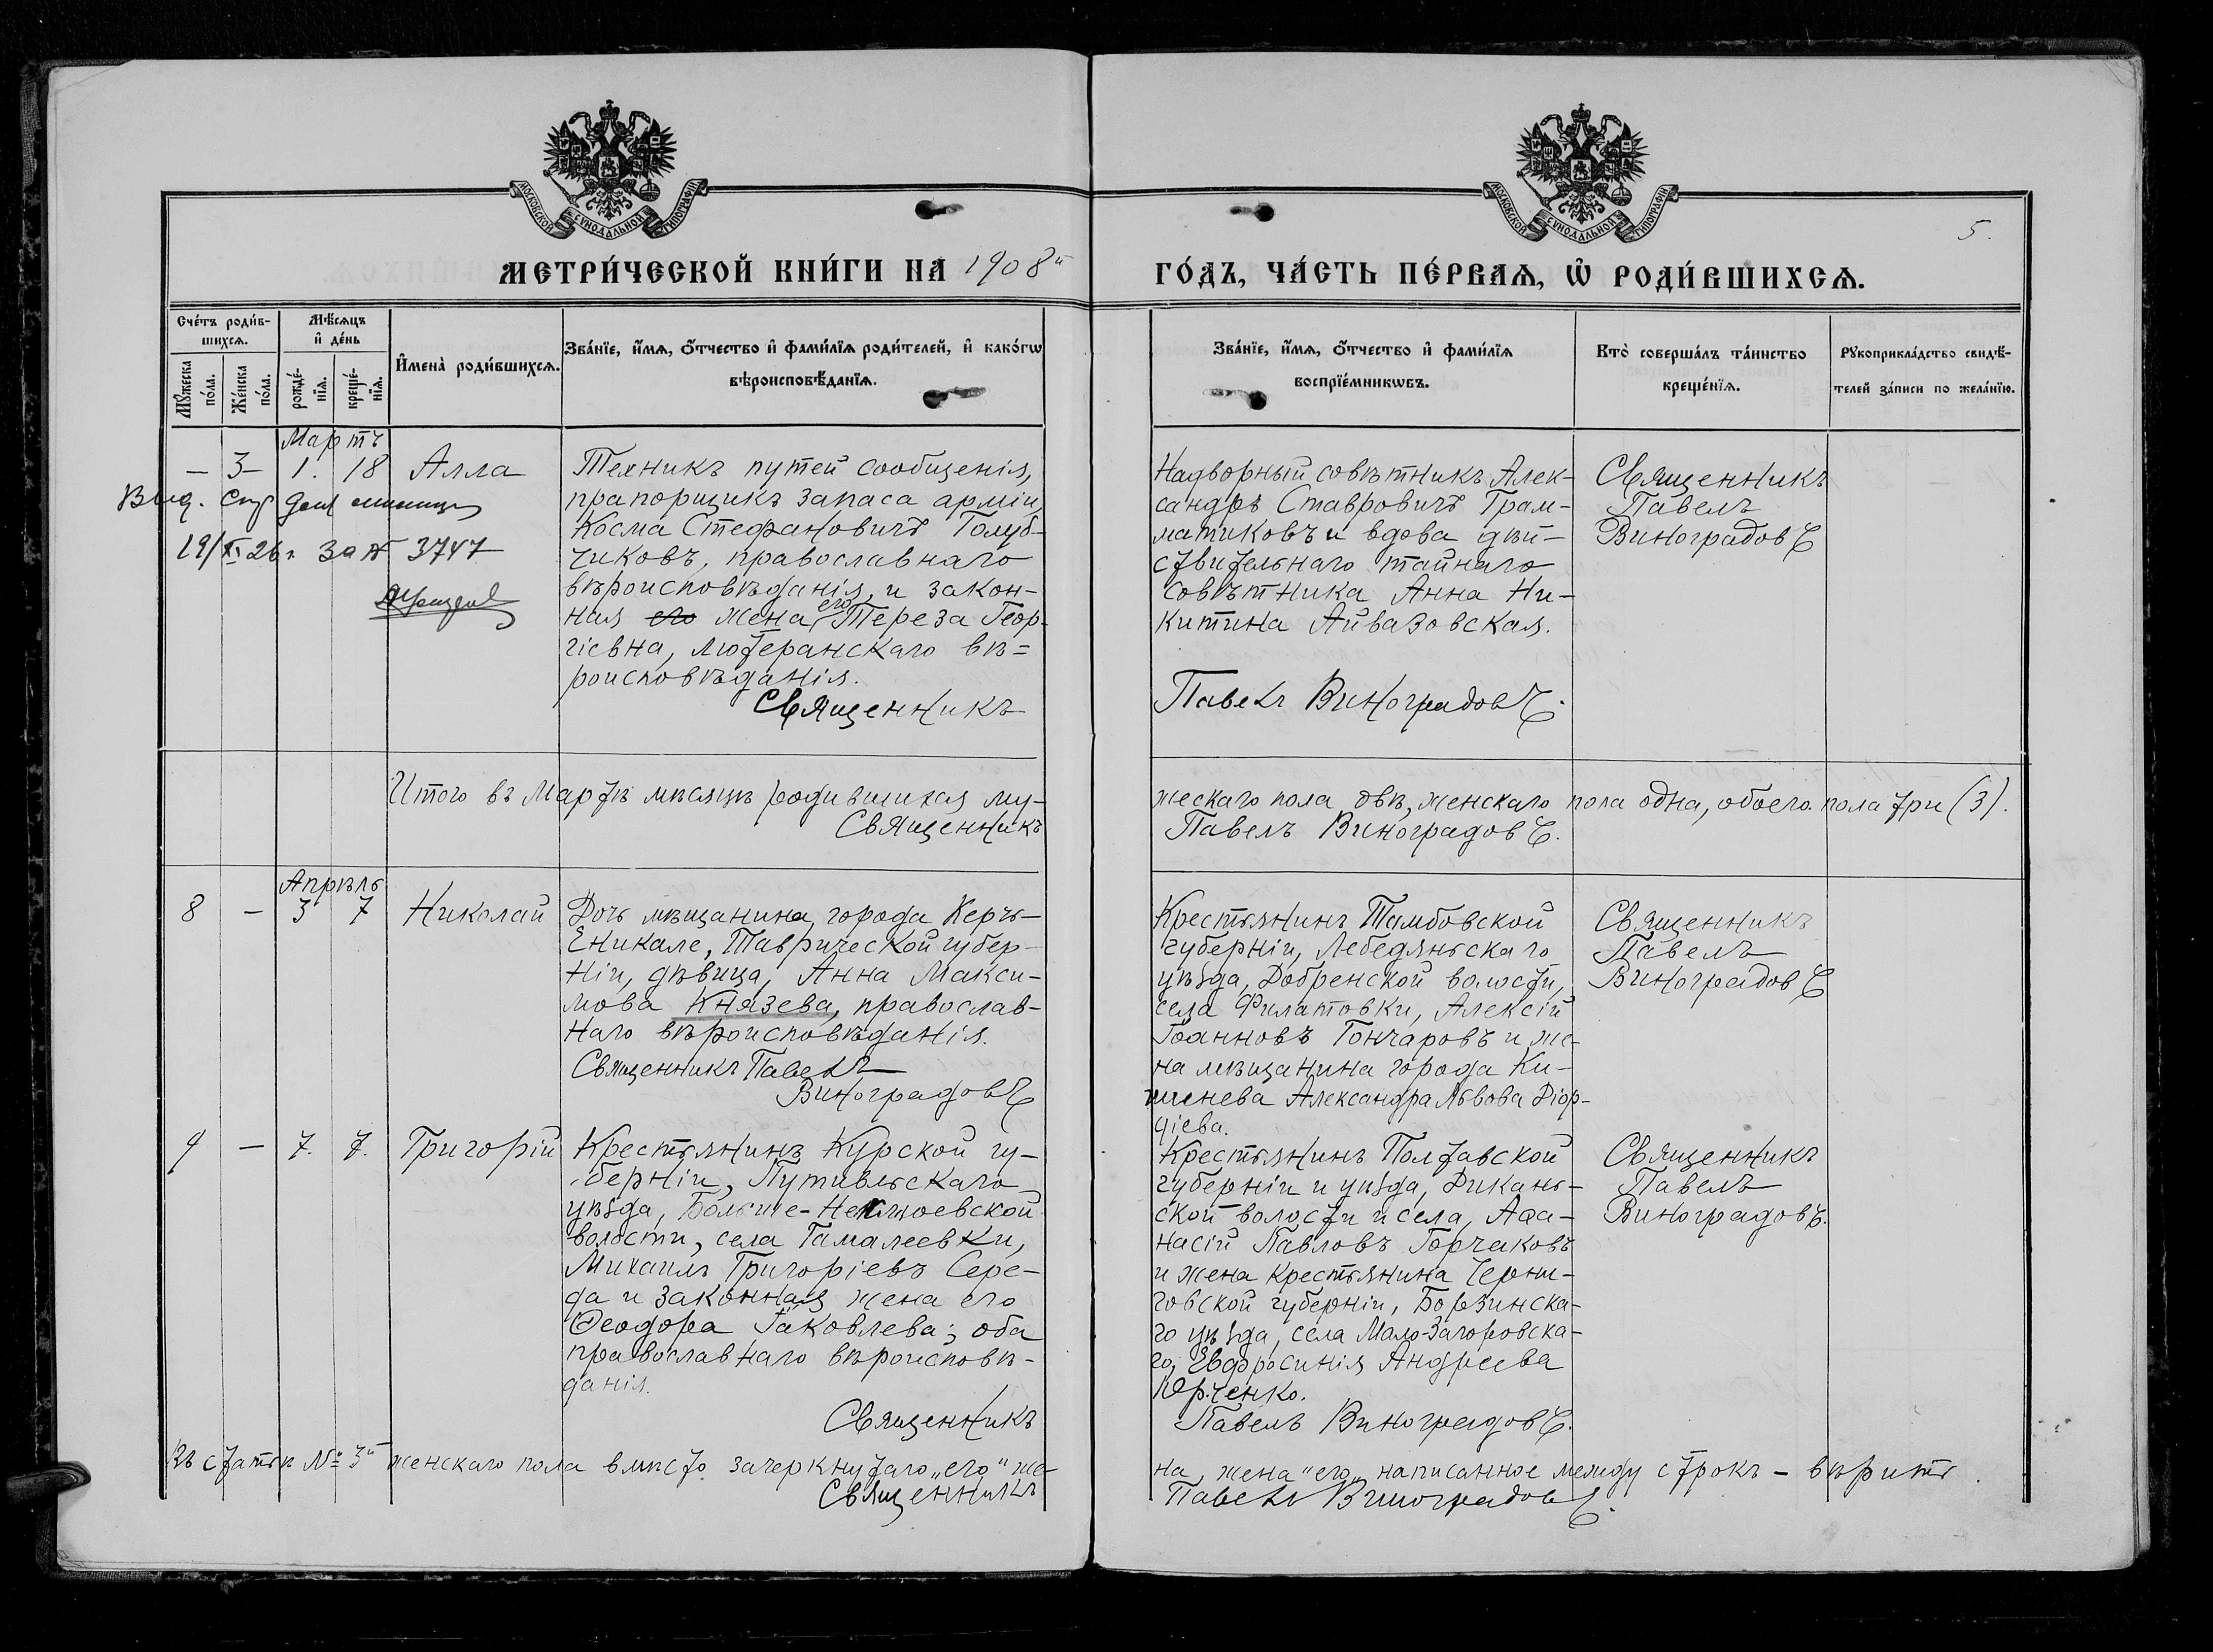 МОСКОВСКОЙ СѴНОДАЛЬНОЙ ТИПОГРАФІИ
МОСКОВСКОЙ СѴНОДАЛЬНОЙ ТИПОГРАФІИ
5.
МЕТРИ́ЧЕСКОЙ КНИ́ГИ НА 1908й
ГО́ДЪ, ЧА́СТЬ ПЕ́РВАѦ, Ѡ҆ РОДИ́ВШИХСѦ.
Сче́тъ роди́в-
шихсѧ.
Мꙋ́жеска по́ла.
Же́нска по́ла.
Мѣ́сѧцъ
и҆ де́нь
рожде́-
нїѧ.
креще́-
нїѧ.
И҆мена̀ роди́вшихсѧ.
Зва́нїе, и҆́мѧ, ѻ҆́тчество и҆ фами́лїѧ роди́телей, и҆ како́гѡ
вѣроисповѣ́данїѧ.
Зва́нїе, и҆́мѧ, ѻ҆́тчество и҆ фами́лїѧ
воспрїе́мникѡвъ.
Кто̀ соверша́лъ та́инство
креще́нїѧ.
Рꙋкоприкла́дство свидѣ́-
телей за́писи по жела́нїю.
Мартъ
— 3 1. 18 Алла
Выд.
19/XI 26 г за № 3747
Техникъ путей сообщенія,
прапорщикъ запаса арміи,
Косма Стефановичъ Голуб-
чиковъ, православнаго
вѣроисповѣданія, и закон-
ная его жена его Тереза Геор-
гіевна, лютеранскаго вѣ-
роисповѣданія.
Священникъ
Надворный совѣтникъ Алек-
сандръ Ставровичъ Грам-
матиковъ и вдова дѣй-
ствительнаго тайнаго
совѣтника Анна Ни-
китина Айвазовская.
Павелъ Виноградовъ.
Священникъ
Павелъ
Виноградовъ
Итого въ Мартѣ мѣсяцѣ родившихся му-
Священникъ
жескаго пола двѣ, женскаго пола одна, обоего пола три (3).
Павелъ Виноградовъ.
Апрѣль
8 — 3 7 Николай
Дочь мѣщанина города Керчь-
Еникале, Таврической губер-
ніи, дѣвица, Анна Макси-
мова Князева, православ-
наго вѣроисповѣданія.
Священникъ Павелъ
Виноградовъ
Крестьянинъ Тамбовской
губерніи, Лебедянскаго
уѣзда, Добренской волости,
села Филатовки, Алексій
Іоанновъ Гончаровъ и же-
на мѣщанина города Ки-
шинева Александра Львова Діор-
діева.
Священникъ
Павелъ
Виноградовъ
9 — 7. 7. Григорій
Крестьянинъ Курской гу-
берніи, Путивльскаго
уѣзда, Больше-
волости, села Гамалеевки,
Михаилъ Григоріевъ Сере-
да и законная жена его
Ѳеодора Іаковлева; оба
православнаго вѣроисповѣ-
данія.
Священникъ
Крестьянинъ Полтавской
губерніи и уѣзда, Дикань-
ской волости и села, Аѳа-
насій Павловъ Горчаковъ
и жена крестьянина Черни-
говской губерніи, Борзинска-
го уѣзда, села Мало-Загоровска-
го, Евфросинія Андреева
Юрченко.
Павелъ Виноградовъ.
Священникъ
Павелъ
Виноградовъ.
Къ статьѣ № 3й женскаго пола вмѣсто зачеркнутаго „его" же-
Священникъ
на, жена „его" написанное между строкъ – вѣрить.
Павелъ Виноградовъ.